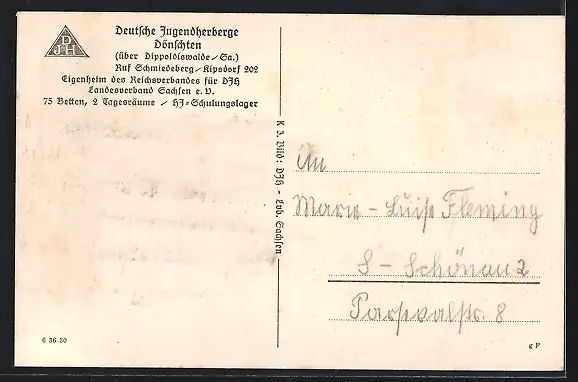 DJH
Deutsche Jugendherberge
Dönschten
(über Dippoldiswalde/Sa.)
Ruf Schmiedeberg/Kipsdorf 202
Eigenheim des Reichsverbandes für DJH
Landesverband Sachsen e. V.
75 Betten, 2 Tagesräume / HJ=Schulungslager
K 3. Bild: DJH - Lvb. Sachsen
An
Marie-Luise Fleming
S-Schönau 2
Parsevalstr. 8
6 36 50
g F